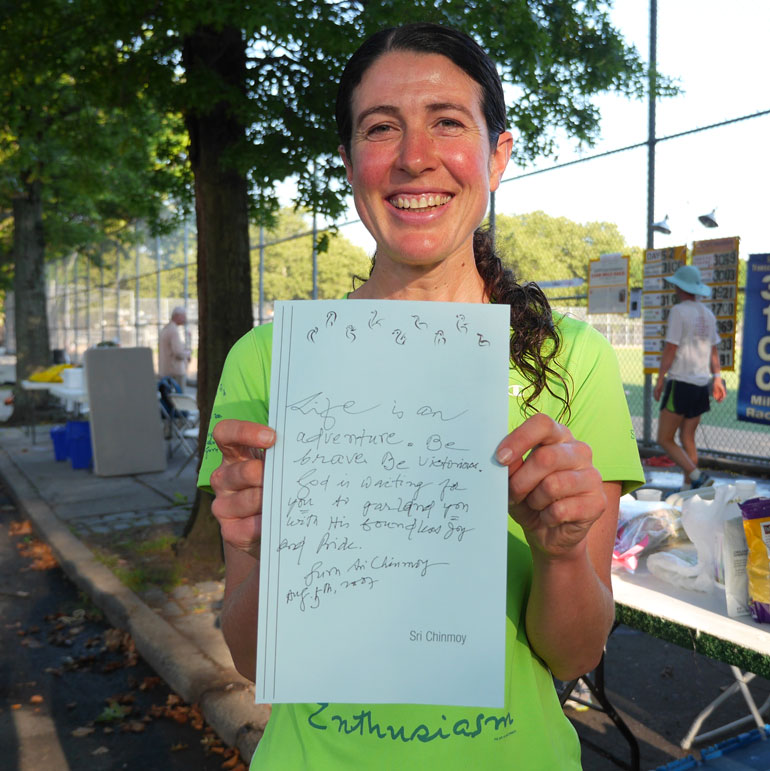 Life is an
adventure. Be
brave. Be victorious.
God is waiting for
you to garland you
with His boundless joy
and Pride.
Guru Sri Chinmoy
Aug. 5th, 2007
Sri Chinmoy
Enthusiasm